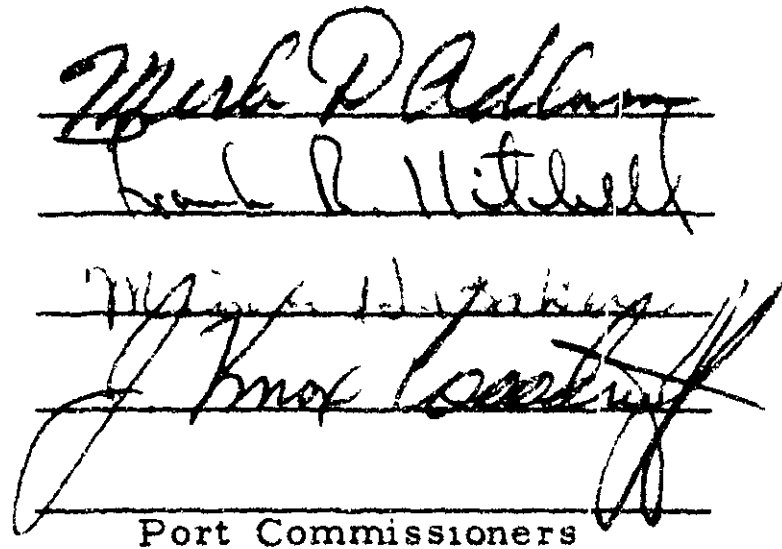 Merle D Adlum
Frank R. Kitchell
J Knox Woodruff
Port Commissioners